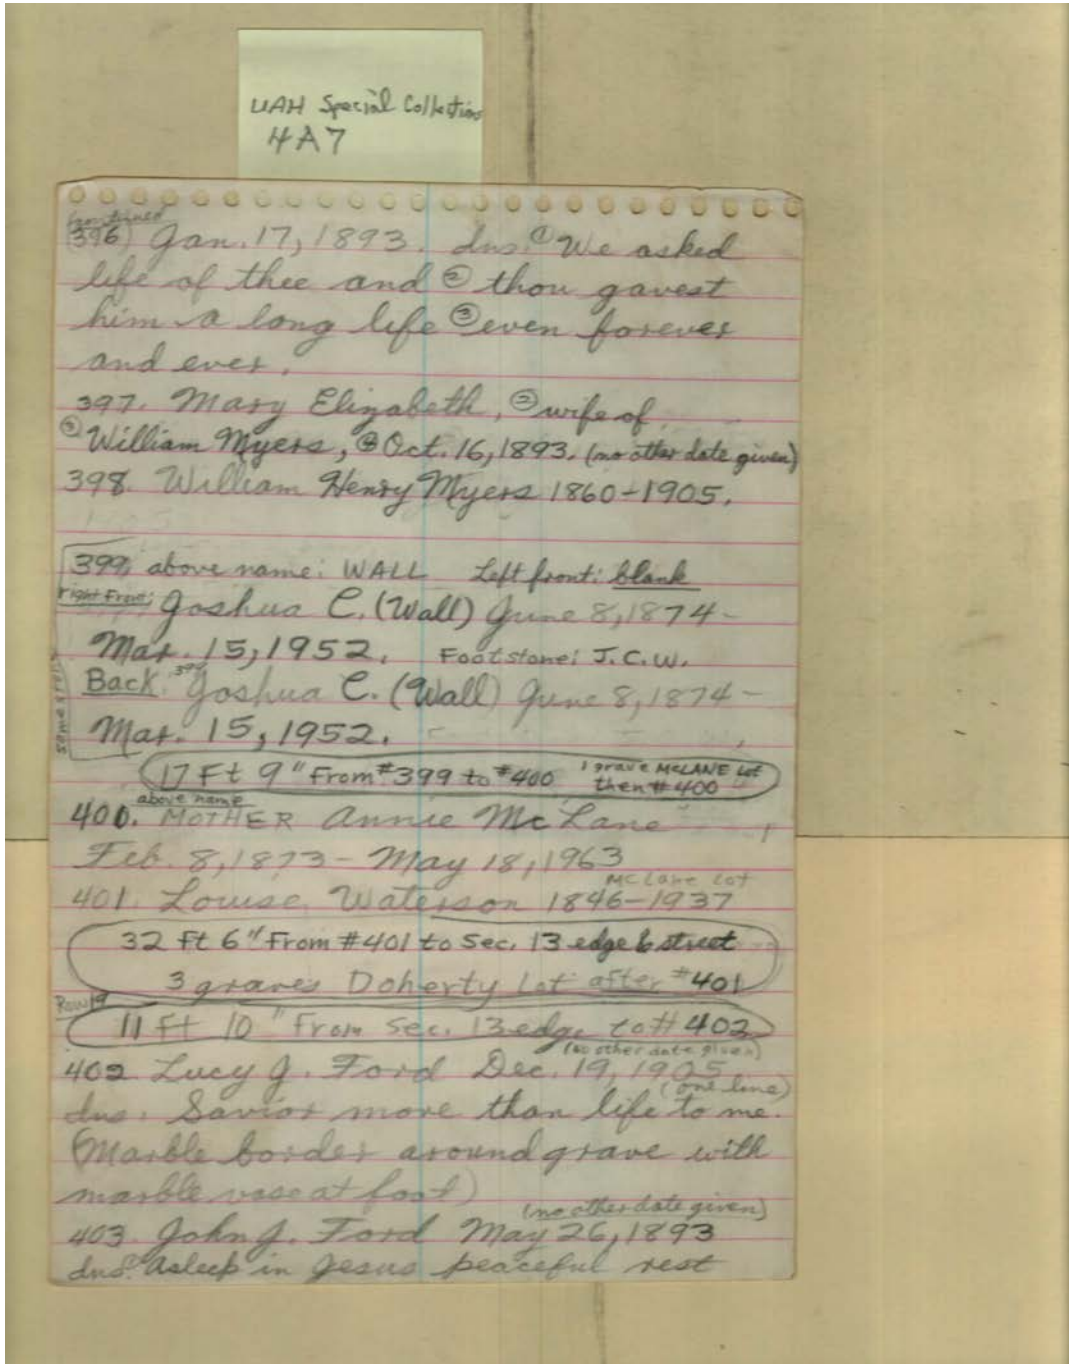 UAH Special Collections
4A7
continued
(396) Jan. 17, 1893. Ins. ① We asked
life of thee and ② thou gavest
him a long life ③ even forever
and ever.
397. Mary Elizabeth, ② wife of
③ William Myers, ④ Oct. 16, 1893. (no other date given)
398. William Henry Myers 1860-1905.
399, above name: WALL Left front: blank
right front: Joshua C. (Wall) June 8, 1874-
Mar. 15, 1952. Footstone: J.C.W.
Back. 399 Joshua C. (Wall) June 8, 1874-
Mar. 15, 1952.
same
17 Ft 9" From #399 to #400 1 grave McLANE Lot
then #400
above name
400. MOTHER Annie McLane
Feb. 8, 1873 - May 18, 1963
McLane Lot
401. Louise Waterson 1846-1937
32 Ft 6" From #401 to Sec. 13 edge & street
3 graves Doherty Lot after #401
Row 19
11 Ft 10" From Sec. 13 edge to # 402
(no other date given)
402 Lucy J. Ford Dec. 19, 1905
(one line)
Ins. Savior more than life to me.
(Marble border around grave with
marble vase at foot)
(no other date given)
403. John J. Ford May 26, 1893
Ins. Asleep in Jesus peaceful rest